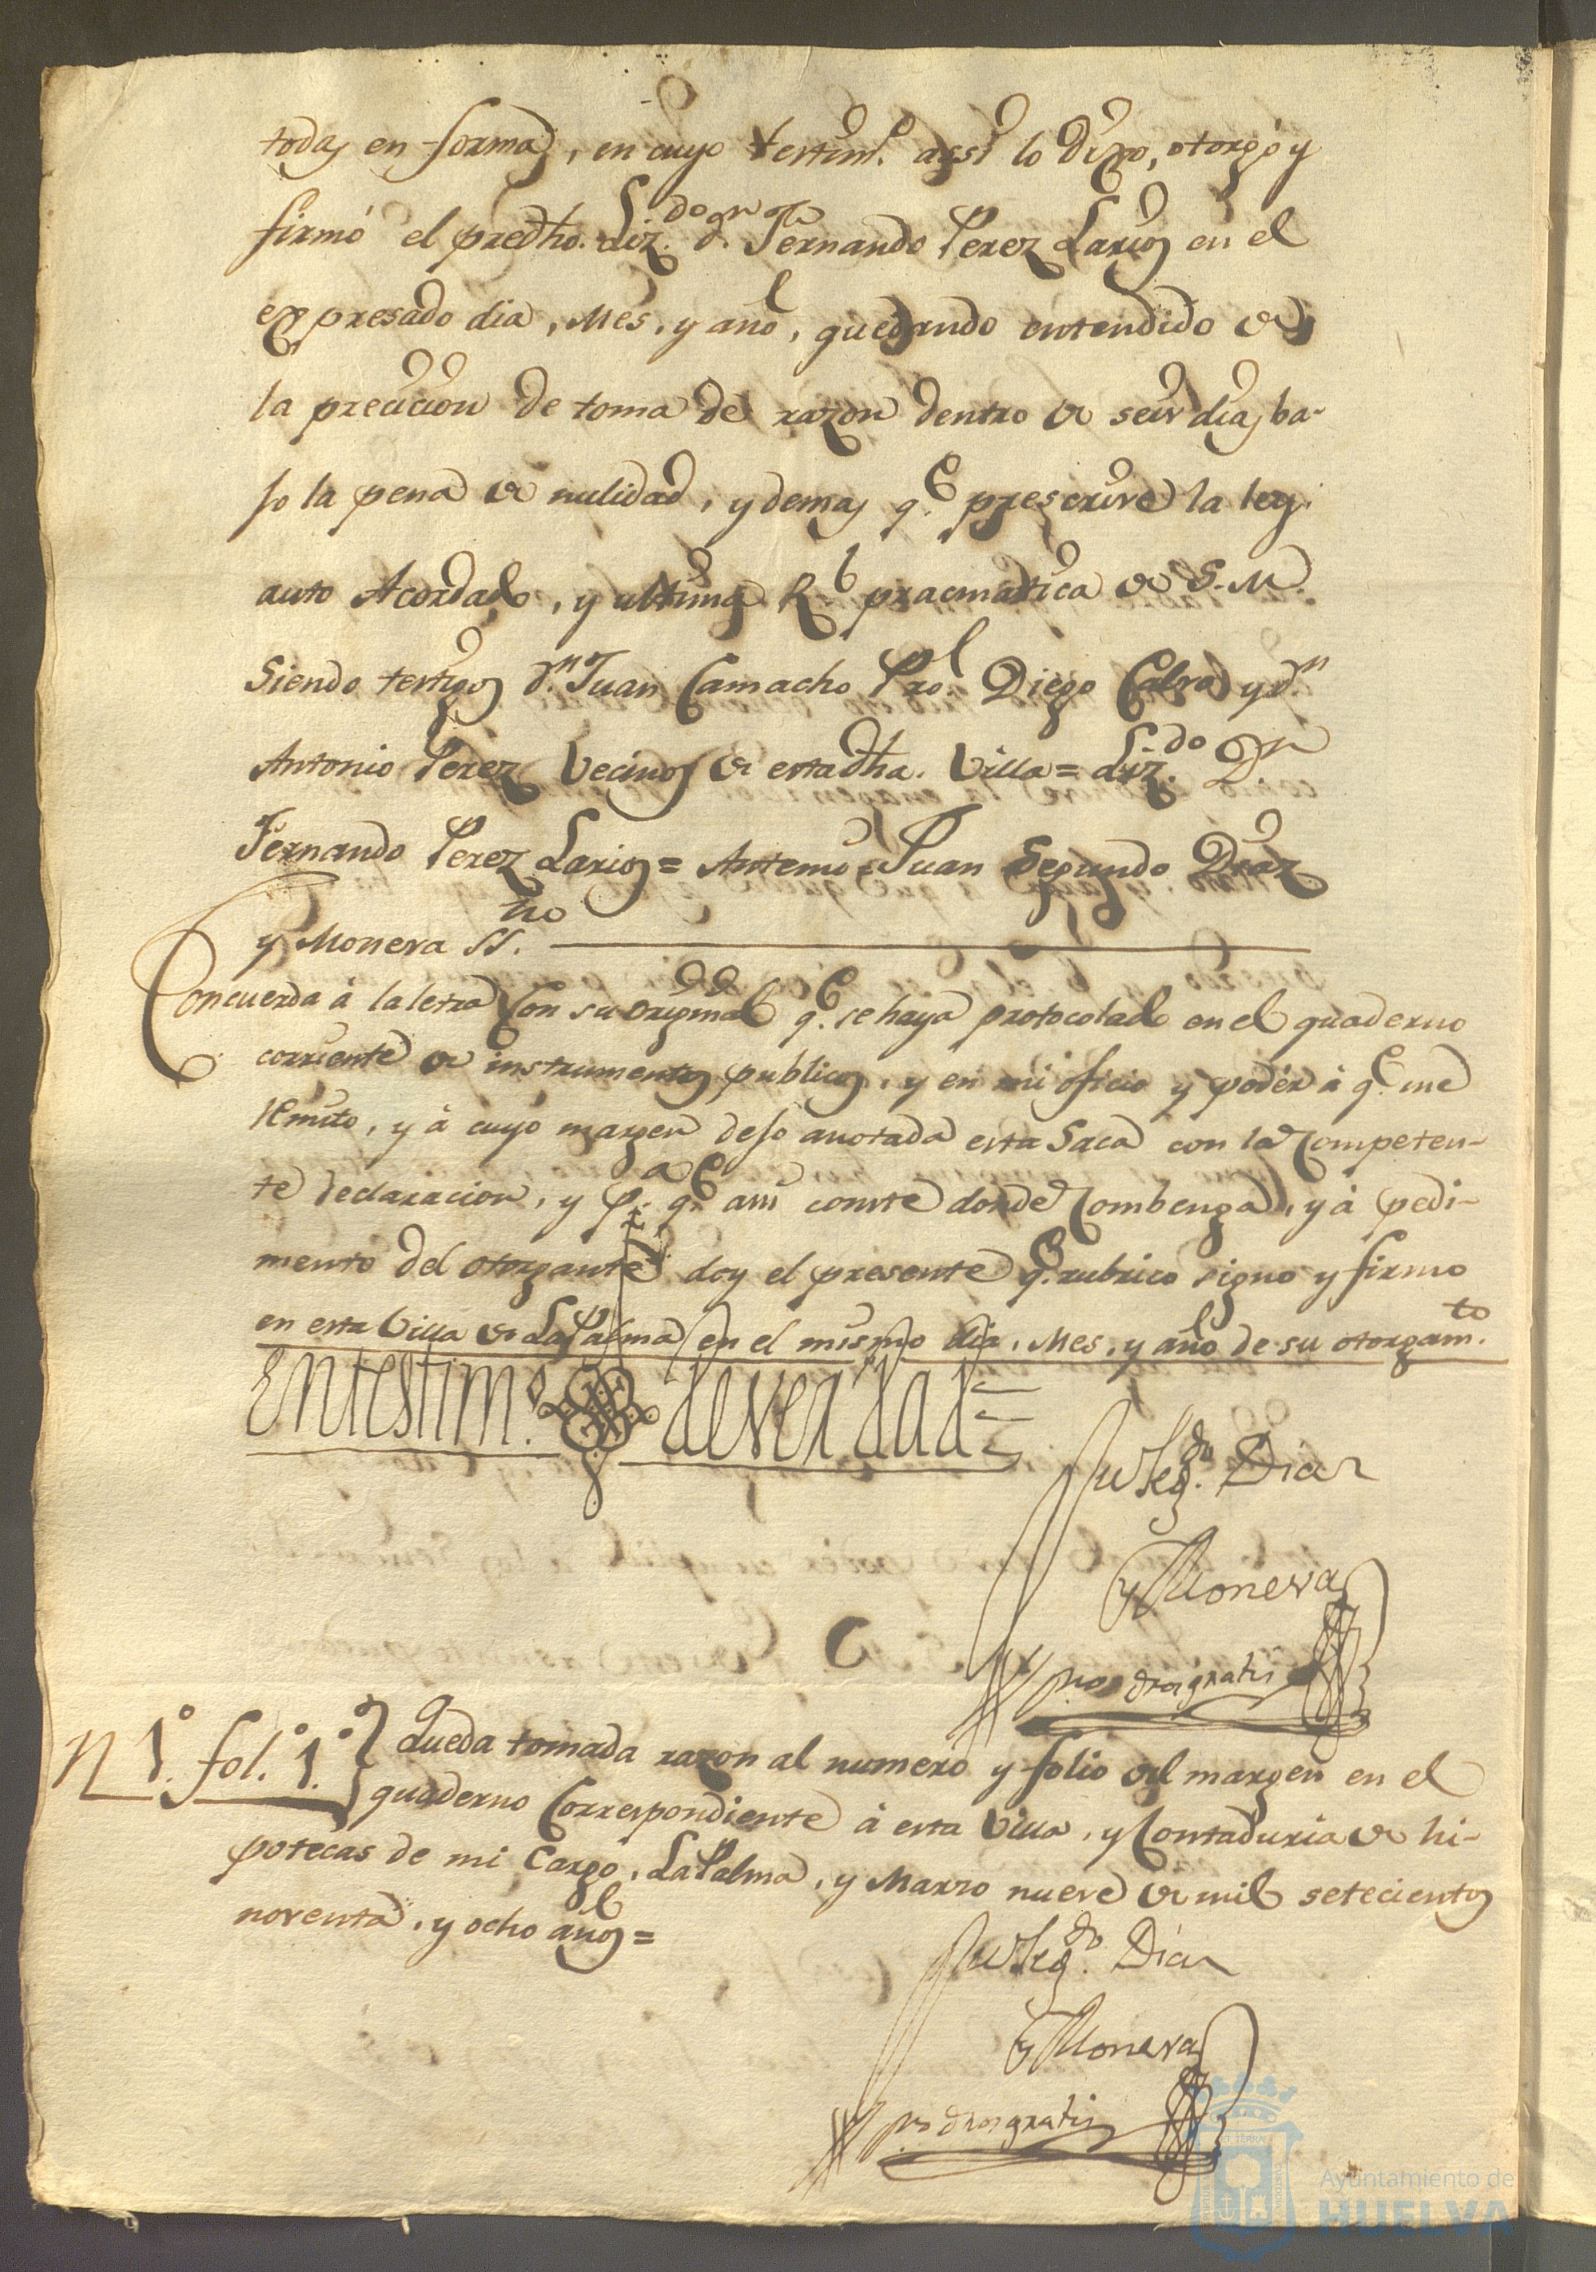 todas en forma, en cuyo testimº. assi lo dixo, otorgó y
firmó el predho. Lizdo. dn. Fernando Perez Larios en el
expresado dia, Mes, y año, quedando entendido de
la precicion de toma de razon dentro de seis dias, ba-
jo la pena de nulidad, y demas qe. prescrive la ley
auto Acordado, y ultima Rl. pracmatica de S. M.
Siendo testigos dn. Juan Camacho Pro. Diego Calva y dn.
Antonio Perez Vecinos de esta dha. Villa = Lizdo. Dn.
Fernando Perez Larios = Antemi = Juan Segundo Diaz
y Moneva SSno.
Concuerda á la letra con su original qe. se haya protocolado en el quaderno
corriente de instrumentos publicos, y en mi oficio y podér á qe. me
remito, y á cuyo margen dejo anotada esta Saca con la competen-
te declaracion, y pa. qe. assi conste donde combenga, y á pedi-
mento del otorgante doy el presente qe. rubrico signo y firmo
en esta Villa de La Palma en el mismo dia, Mes, y año de su otorgamto.
En testimº. de verdad =
Jn. Segdo. Diaz
y Moneva
nos dros gratis
N 1º. fol.º 1º. Queda tomada razon al numero y folio del margen en el
quaderno Correspondiente á esta Villa, y Contaduria de hi-
potecas de mi Cargo. La Palma, y Marzo nueve de mil setecientos
noventa, y ocho años =
Jn. Segdo. Diaz
y Moneva
ps dros gratis
Ayuntamiento de
HUELVA